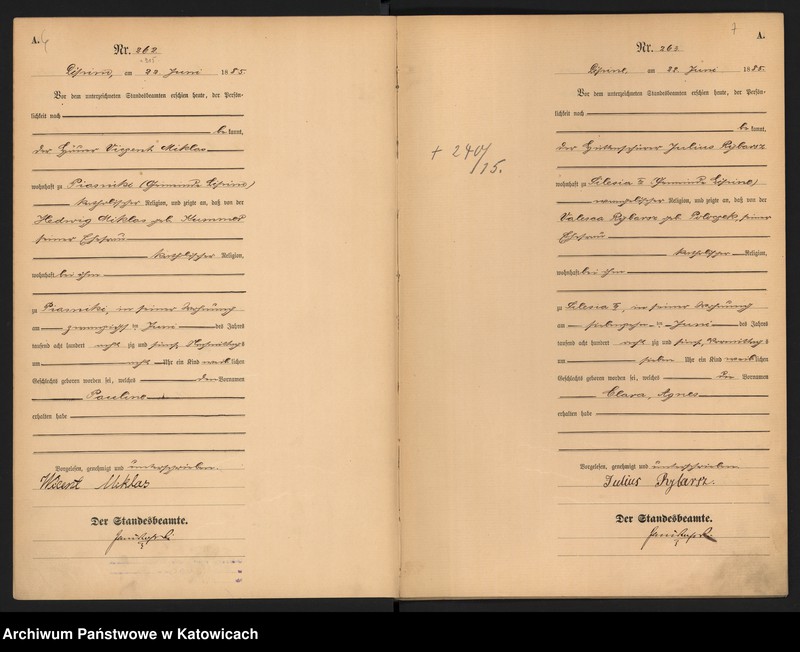 A.
Nr. 262
Lipine, am 22 Juni 1885.
Vor dem unterzeichneten Standesbeamten erschien heute, der Persön-
lichkeit nach
be kannt,
der Häuer Vizent Miklas
wohnhaft zu Piasniki (Gemeinde Lipine)
katholischer Religion, und zeigte an, daß von der
Hedwig Miklas geb. Kummer
seiner Ehefrau
katholischer Religion,
wohnhaft bei ihm
zu Piasniki, in seiner Wohnung
am zwanzigsten Juni des Jahres
tausend acht hundert acht zig und fünf, Nachmittags
um acht Uhr ein Kind weib lichen
Geschlechts geboren worden sei, welches den Vornamen
Pauline
erhalten habe
Vorgelesen, genehmigt und unterschrieben.
Wicent Miklas
Der Standesbeamte.
7
A.
Nr. 263
Lipine, am 22. Juni 1885.
Vor dem unterzeichneten Standesbeamten erschien heute, der Persön-
lichkeit nach
be kannt,
der Julius Rybarz
+ 240/15.
wohnhaft zu Silesia (Gemeinde Lipine)
evangelischer Religion, und zeigte an, daß von der
Valesca Rybarz geb. seiner
Ehefrau
katholischer Religion,
wohnhaft bei ihm
zu Silesia in seiner Wohnung
am Juni des Jahres
tausend acht hundert acht zig und fünf, Vormittags
um sieben Uhr ein Kind weib lichen
Geschlechts geboren worden sei, welches die Vornamen
Clara, Agnes
erhalten habe
Vorgelesen, genehmigt und unterschrieben.
Julius Rybarz.
Der Standesbeamte.
Archiwum Państwowe w Katowicach